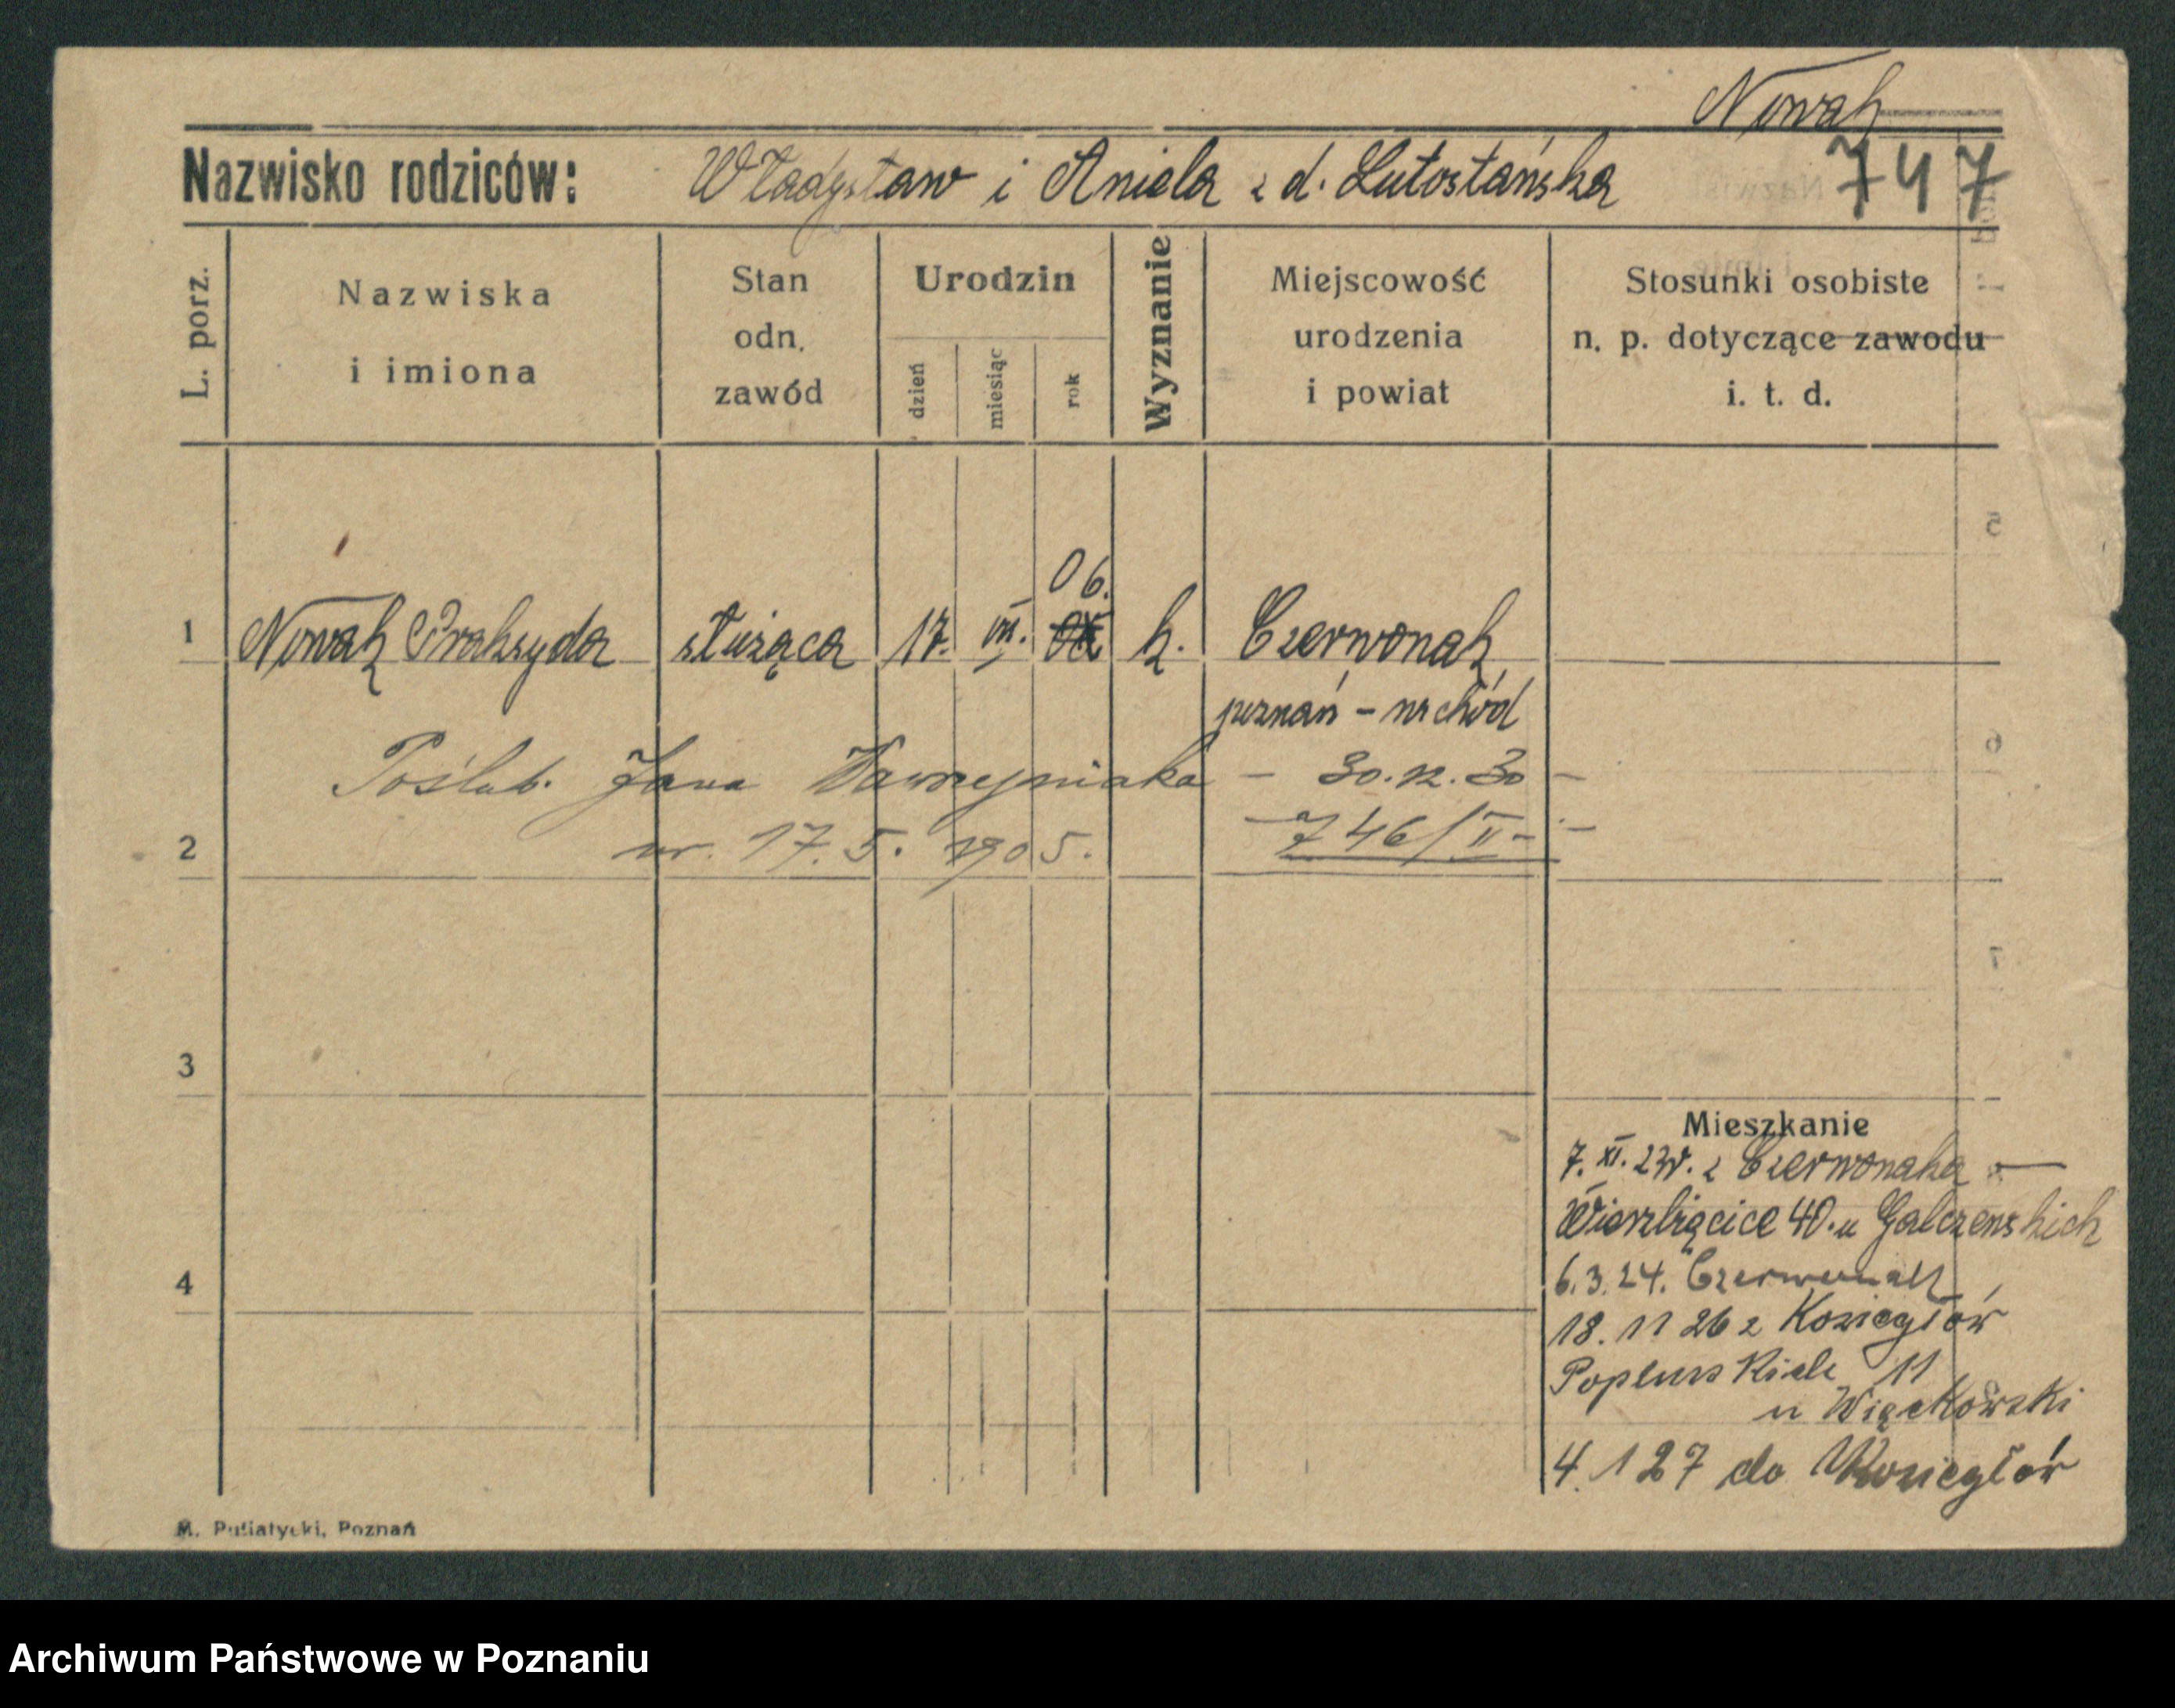 Nowak
Nazwisko rodziców: Władysław i Aniela z d. Lutostańska 747
L. porz.
Nazwiska
i imiona
Stan
odn.
zawód
Urodzin
dzień
miesiąc
rok
Wyznanie
Miejscowość
urodzenia
i powiat
Stosunki osobiste
n. p. dotyczące zawodu
i. t. d.
06.
1 Nowak Praksyda służąca 17. VII. k. Czerwonak
poznań - wschód
Poślub. Jana Wawrzyniaka - 30.12.30 -
ur. 17.5.1905. - 746/II -
2
3
4
5
6
7
Mieszkanie
7. XI. 23r. z Czerwonaka —
Wierzbięcice 40. u Galczenskich
6.3.24. Czerwonak
18. 11 26 z Koziegłów
Poplinskich 11
u Więckowski
4. 1 27 do Koziegłów
M. Putiatycki, Poznań
Archiwum Państwowe w Poznaniu